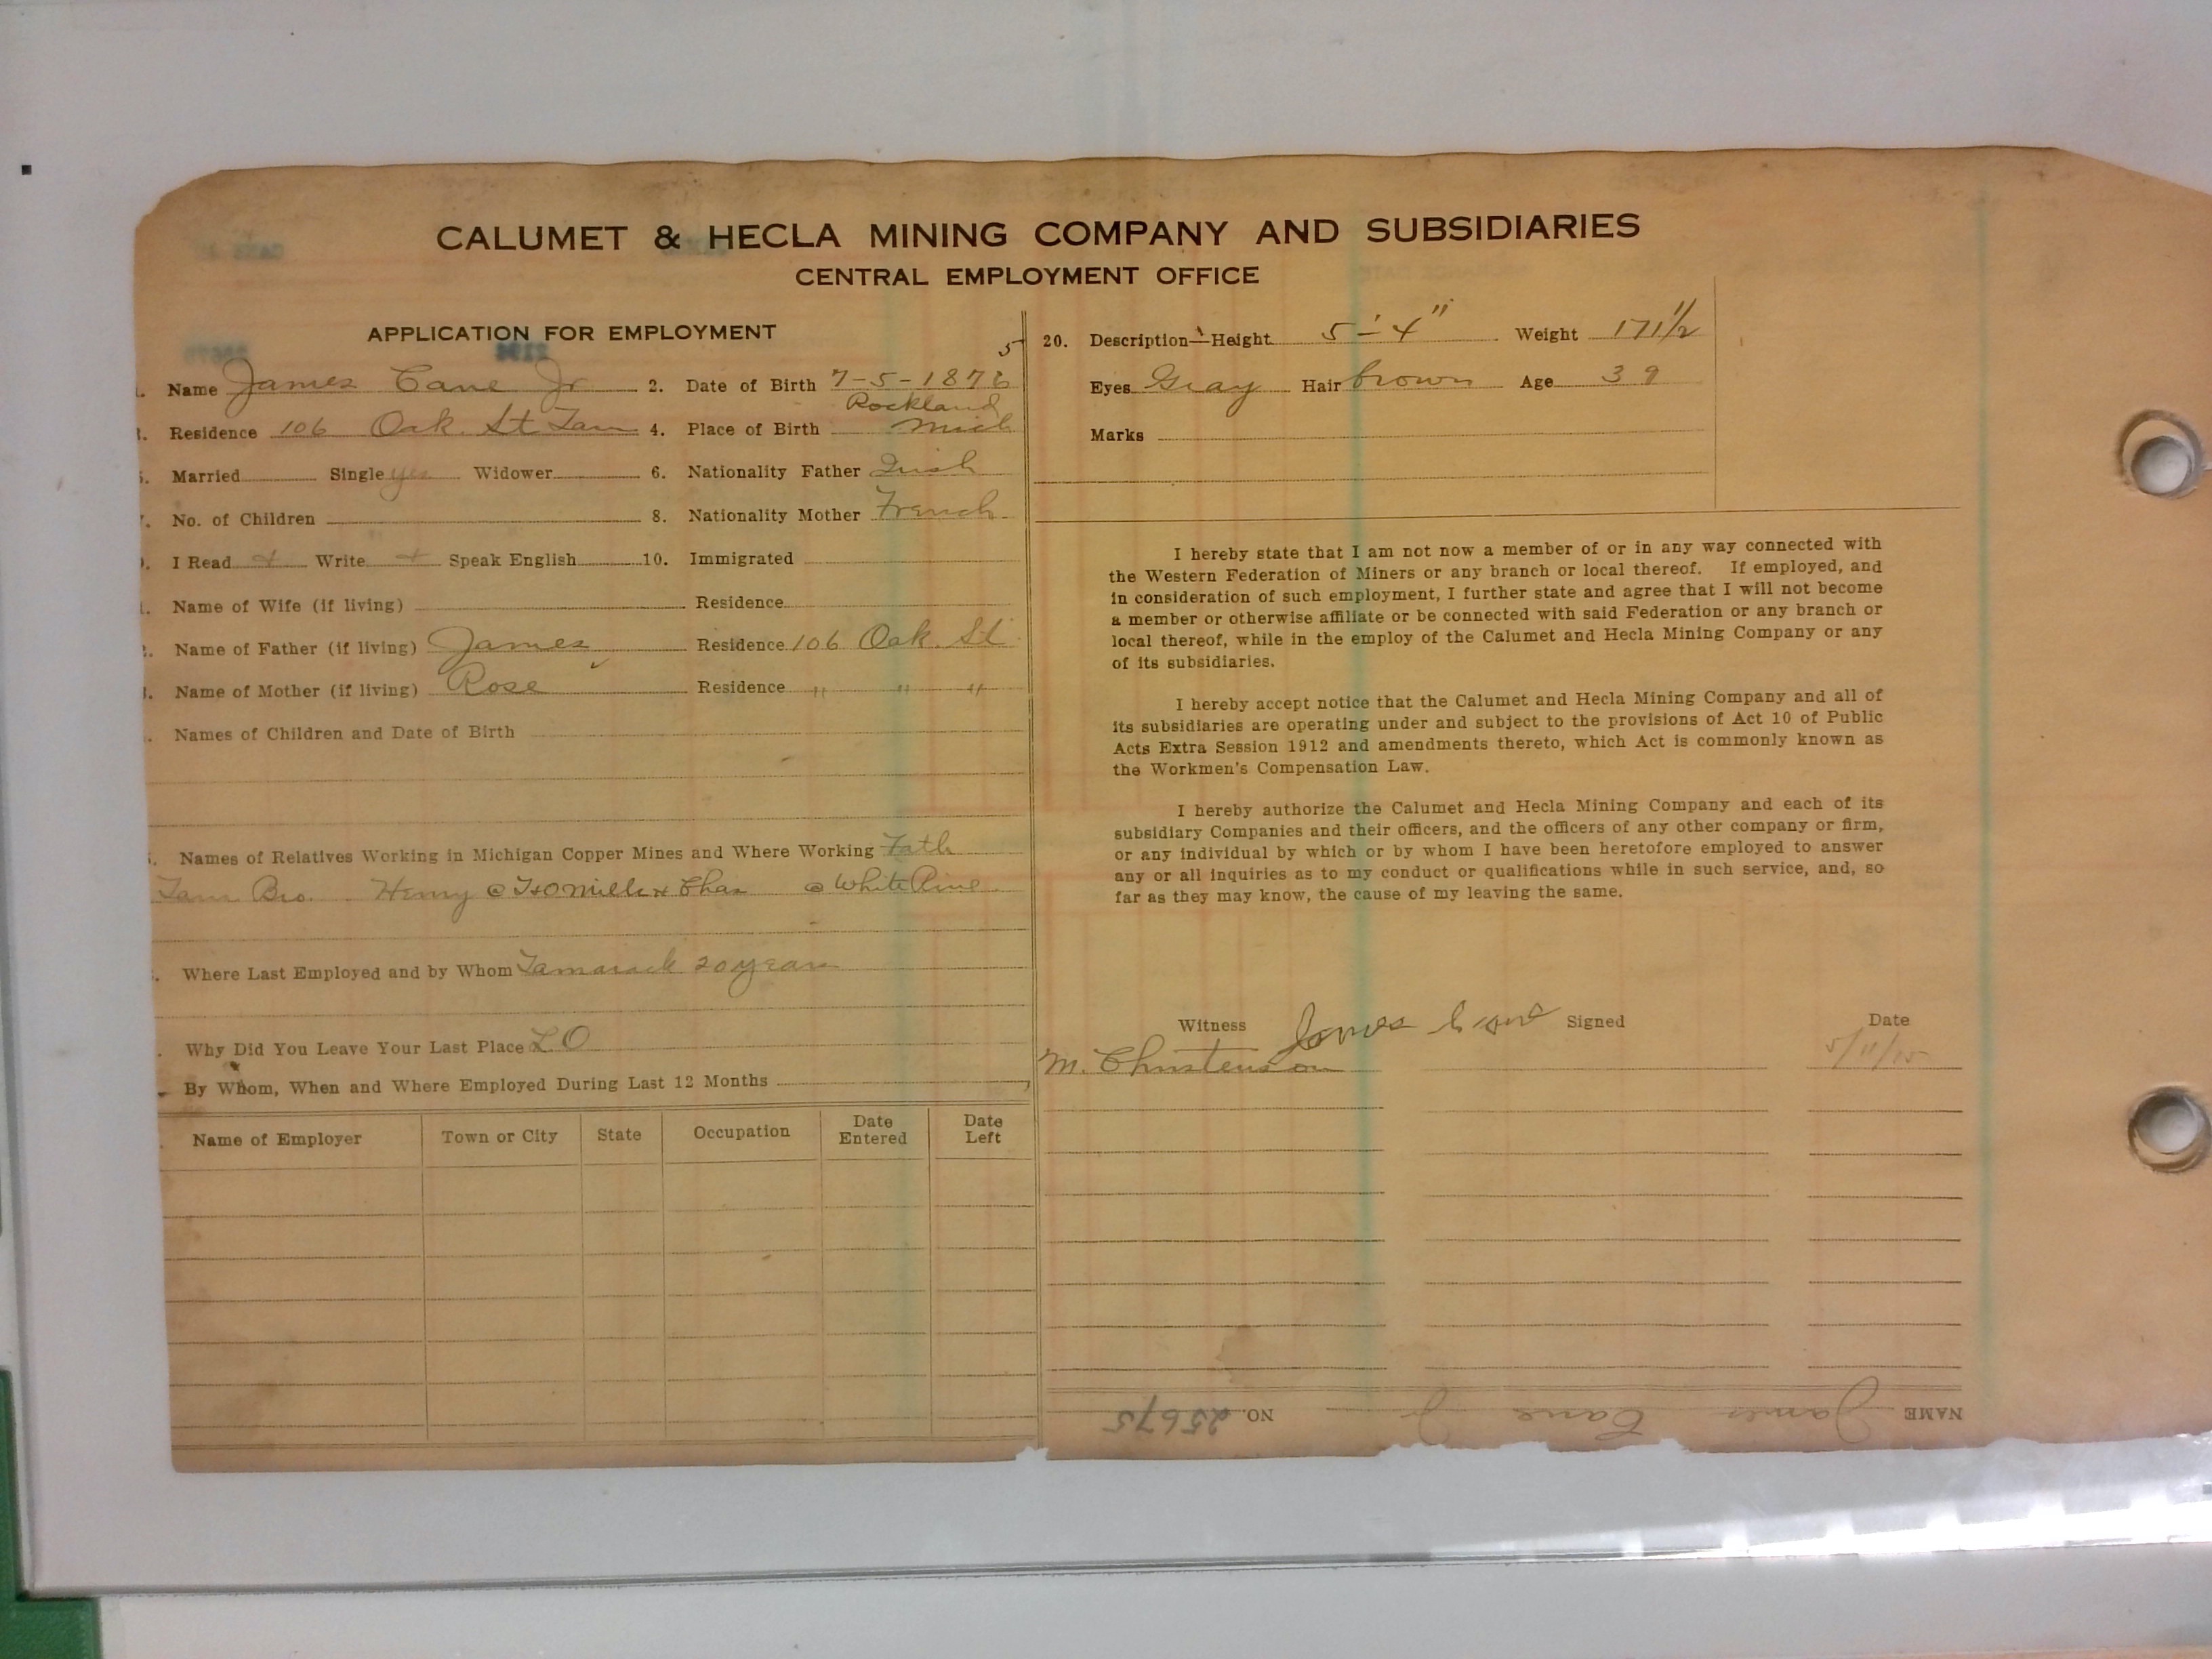 CALUMET & HECLA MINING COMPANY AND SUBSIDIARIES
CENTRAL EMPLOYMENT OFFICE
APPLICATION FOR EMPLOYMENT
5
Name James Cane Jr 2. Date of Birth 7-5-1876
Rockland
Residence 106 Oak St Tam 4. Place of Birth Mich
Married Single yes Widower 6. Nationality Father Irish
No. of Children 8. Nationality Mother French
I Read Write Speak English 10. Immigrated
Name of Wife (if living) Residence
Name of Father (if living) James Residence 106 Oak St
Name of Mother (if living) Rose Residence " " "
Names of Children and Date of Birth
Names of Relatives Working in Michigan Copper Mines and Where Working Fath
Tam Bro. Henry @ Mill & Chas @ White Pine
Where Last Employed and by Whom Tamarack 20 years
Why Did You Leave Your Last Place L O
By Whom, When and Where Employed During Last 12 Months
Name of Employer Town or City State Occupation Date Entered Date Left
20. Description—Height 5'-4" Weight 171½
Eyes Gray Hair brown Age 39
Marks
I hereby state that I am not now a member of or in any way connected with
the Western Federation of Miners or any branch or local thereof. If employed, and
in consideration of such employment, I further state and agree that I will not become
a member or otherwise affiliate or be connected with said Federation or any branch or
local thereof, while in the employ of the Calumet and Hecla Mining Company or any
of its subsidiaries.
I hereby accept notice that the Calumet and Hecla Mining Company and all of
its subsidiaries are operating under and subject to the provisions of Act 10 of Public
Acts Extra Session 1912 and amendments thereto, which Act is commonly known as
the Workmen's Compensation Law.
I hereby authorize the Calumet and Hecla Mining Company and each of its
subsidiary Companies and their officers, and the officers of any other company or firm,
or any individual by which or by whom I have been heretofore employed to answer
any or all inquiries as to my conduct or qualifications while in such service, and, so
far as they may know, the cause of my leaving the same.
Witness James Cane Signed Date
M. Christenson 5/11/15
NAME James Cane Jr NO. 25675